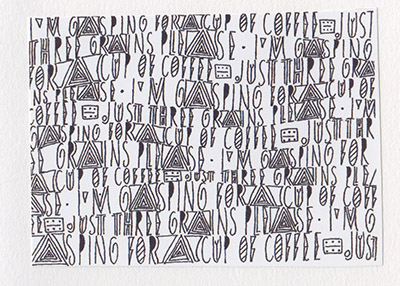 I'M GASPING FOR A CUP OF COFFEE JUST
THREE GRAINS PLEASE · I'M GASPING
FOR A CUP OF COFFEE JUST THREE GRA
INS PLEASE · I'M GASPING FOR A CUP OF
COFFEE JUST THREE GRAINS PLEASE · I'M G
ASPING FOR A CUP OF COFFEE JUST THR
EE GRAINS PLEASE · I'M GASPING FOR
A CUP OF COFFEE JUST THREE GRAINS PLE
ASE · I'M GASPING FOR A CUP OF COFFEE
JUST THREE GRAINS PLEASE · I'M G
ASPING FOR A CUP OF COFFEE JUST